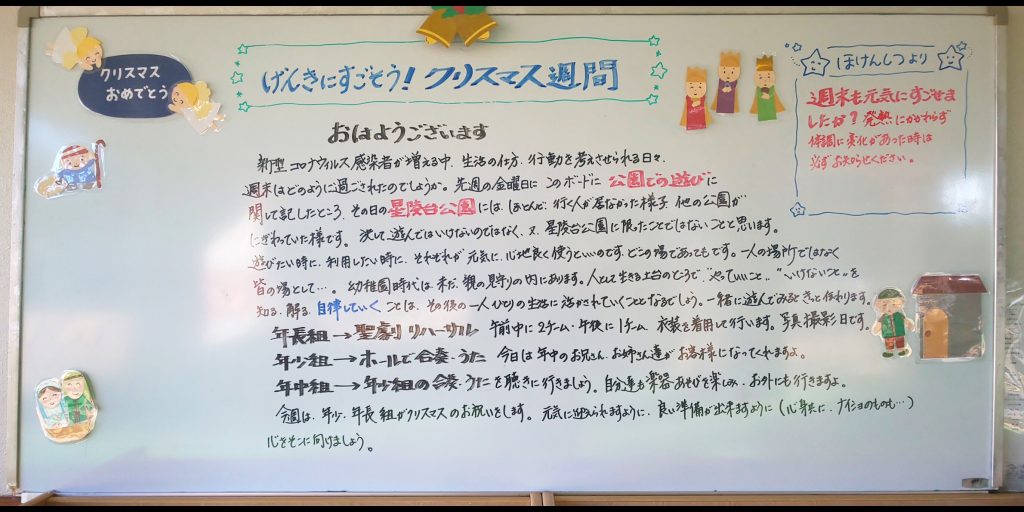 クリスマス
おめでとう
げんきにすごそう！クリスマス週間
おはようございます
新型コロナウィルス感染者が増える中、生活の仕方、行動を考えさせられる日々、
週末はどのように過ごされたのでしょうか。先週の金曜日に このボードに 公園での遊びに
関して記したところ、その日の星陵台公園には、ほとんど、行く人が居なかった様子 他の公園が
にぎわっていた様です。決して、遊んではいけないのではなく、又、星陵台公園に限ったことではないことと思います。
遊びたい時に、利用したい時に、それぞれが 元気に、心地良く使うといいのです。どこの場であってもです。一人の場所ではなく
皆の場として…。幼稚園時代は、未だ、親の見守りの内にあります。人として生きる土台のところで、"やっていいこと"、"いけないこと"を
知る、解る、自律していく ことは、その後の一人ひとりの生活に活かされていくこととなるでしょう。一緒に遊んでみると きっと伝わります。
年長組→聖劇リハーサル 午前中に2チーム・午後に1チーム、衣装を着用して行います。写真撮影日です。
年少組→ホールで合奏・うた 今日は年中のお兄さん、お姉さん達がお客様になってくれますよ。
年中組→年少組の合奏・うたを聴きに行きましょう。自分達も楽器あそびを楽しみ、お外にも行きますよ。
今週は、年少、年長組がクリスマスのお祝いをします。元気に迎えられますように、良い準備が出来ますように（心身共に、ナイショのものも…）
心をそこに向けましょう。
ほけんしつより
週末も元気にすごせま
したか？発熱にかかわらず
体調に変化があった時は
必ずお知らせください。